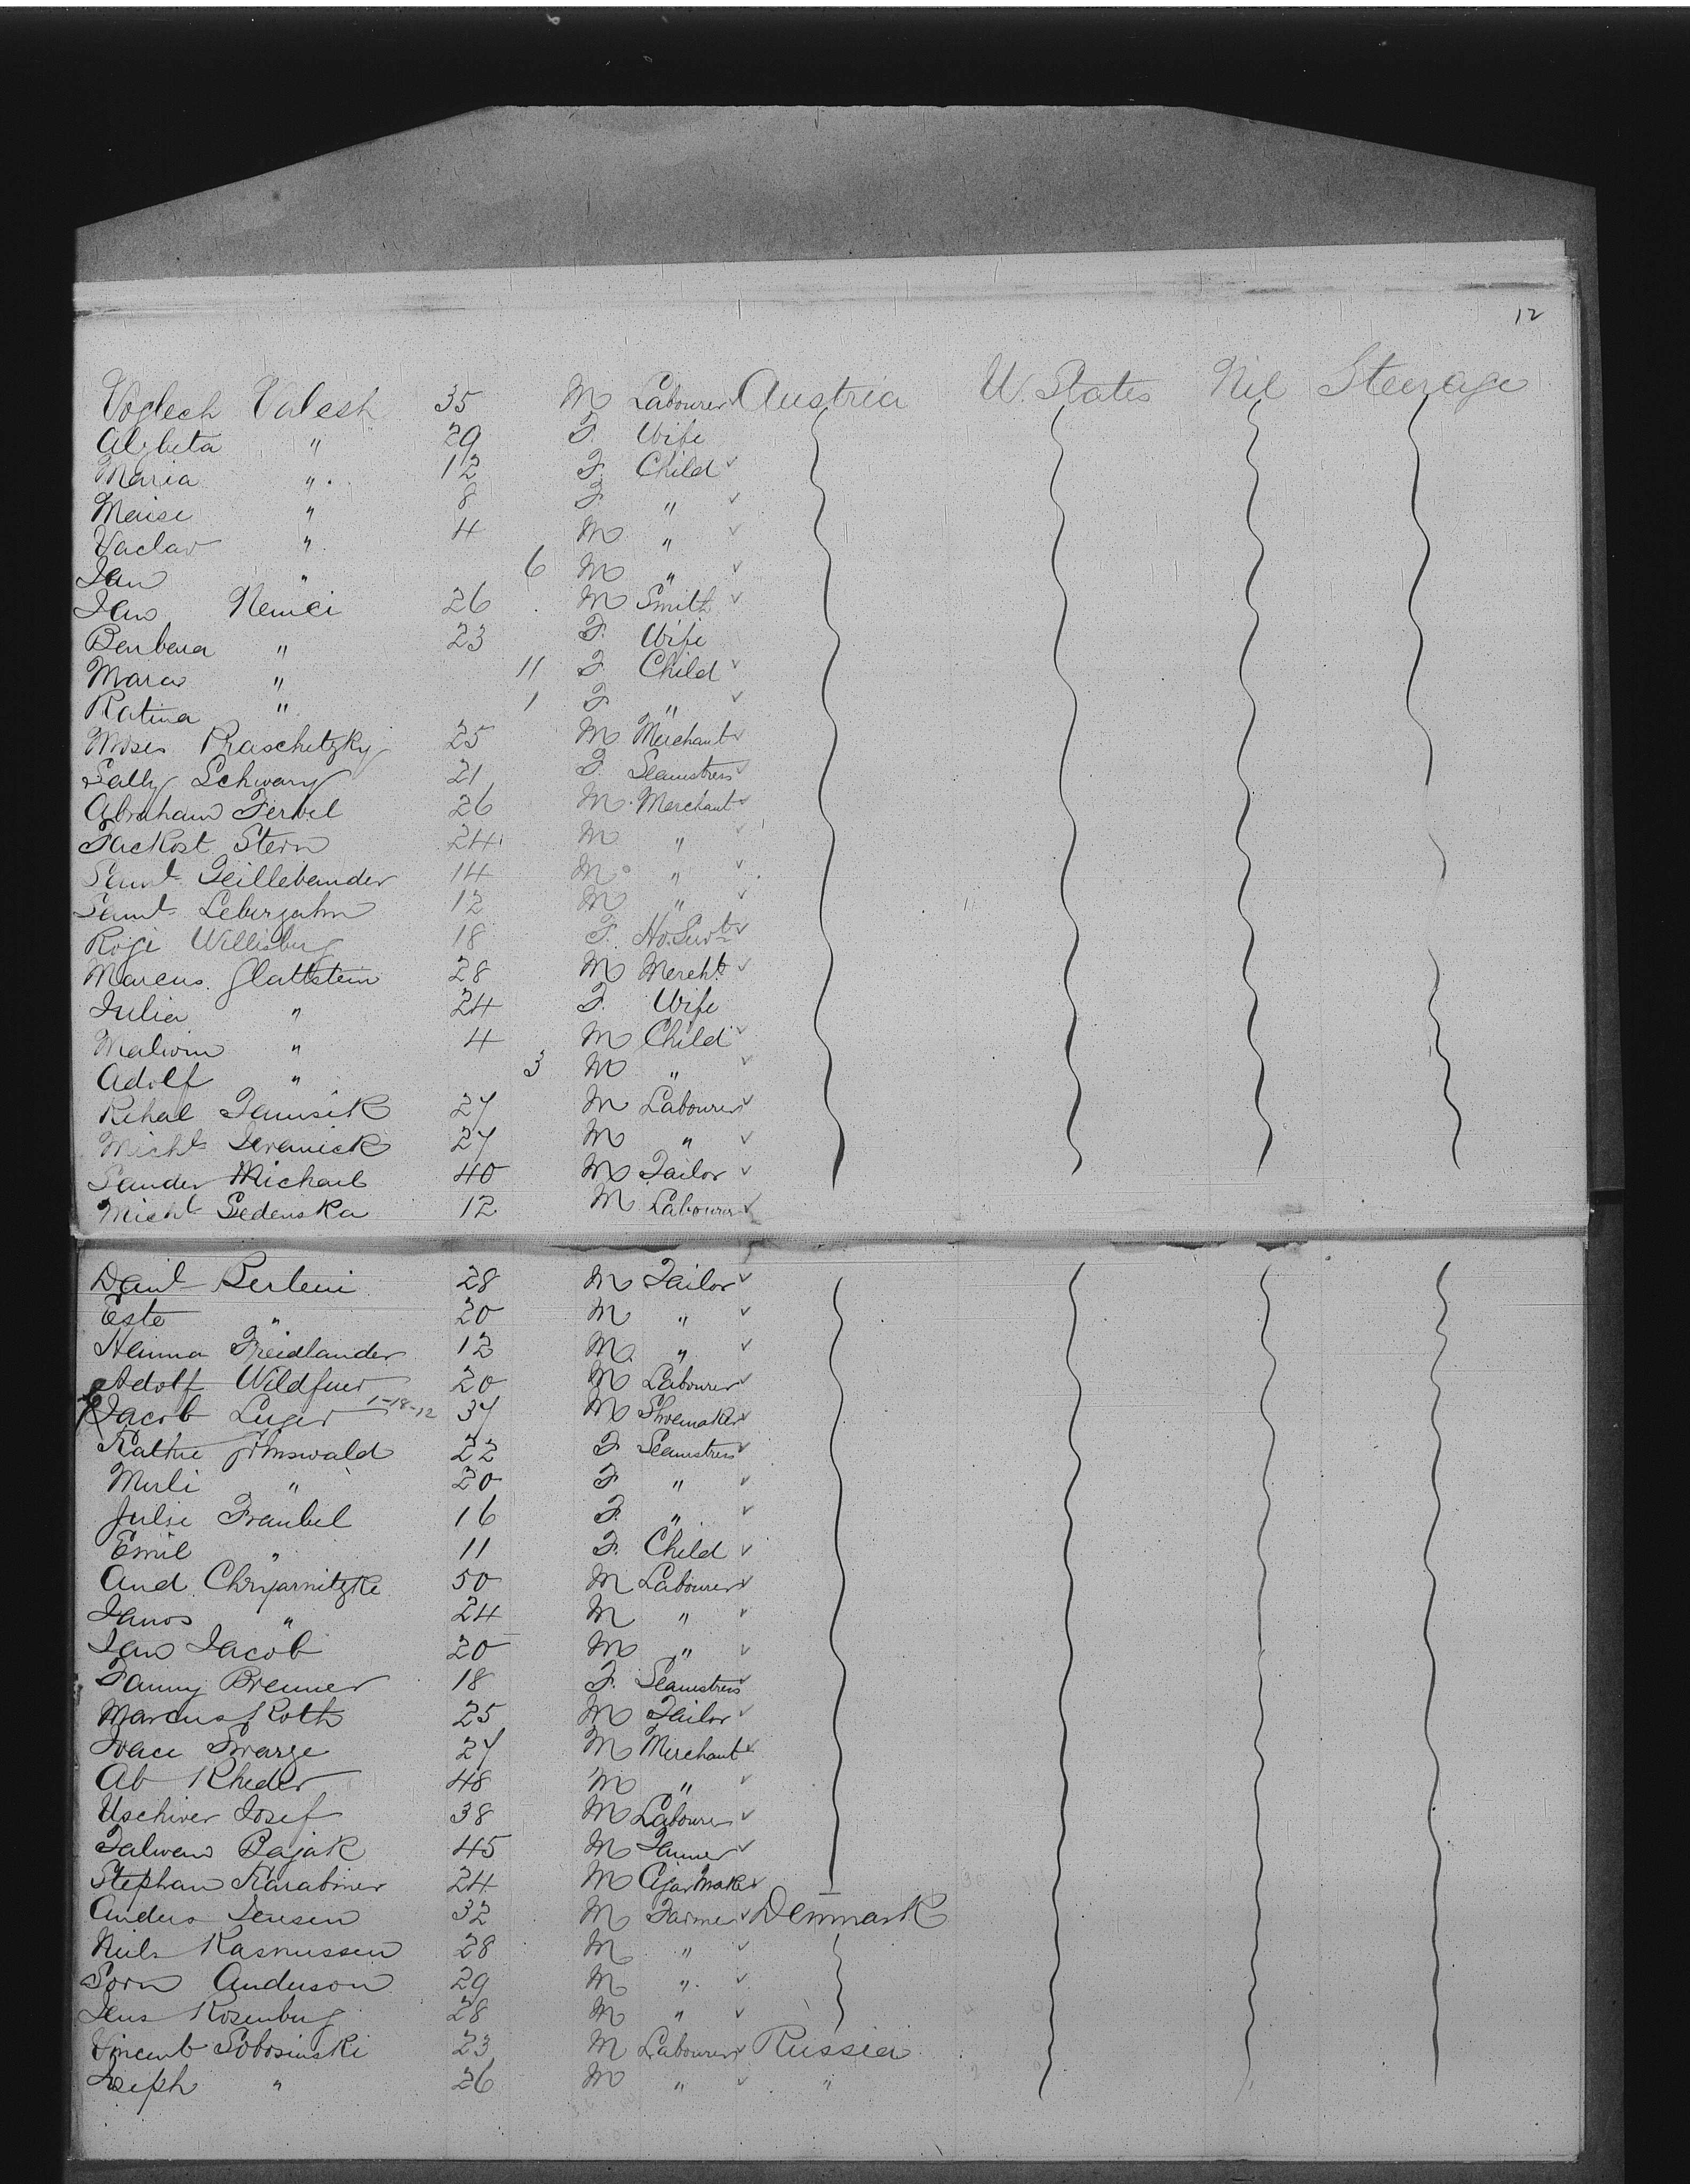 12
Voglech Valesh 35 M Labourer Austria U. States Nil Steerage
Alzbeta " 29 F. Wife
Maria " 12 F. Child
Marise " 8 F "
Vaclav " 4 M "
Jan " 6 M "
Jan Nemei 26 M Smith
Berbera " 23 F. Wife
Mara " 11 F Child
Katina " 1 F "
Moses Praschetzky 25 M Merchant
Sally Schwarz 21 F. Seamstress
Abraham Fervel 26 M. Merchant
Stern 24 M "
Saml 14 M "
Saml Leberzahn 12 M "
Rosi Willisburg 18 F. Ho. Servt
Marcus Glattstein 28 M Mercht
Julia " 24 F. Wife
Malvin " 4 M Child
Adolf " 3 M "
Rihal Jamsik 27 M Labourer
Michl 27 M "
Sander Michael 40 M Tailor
Michl Sedenska 12 M Labourer
Danl Perleni 28 M Tailor
Este " 20 M "
Hanna Freidlander 12 M. "
Adolf Wildfuer 20 M Labourer
Jacob Luger 1-18-12 37 M Shoemaker
Kathe 22 F Seamstress
Murli " 20 F "
Julie Fraubel 16 F. "
Emil " 11 F. Child
And Chryarnitzke 50 M Labourer
Janos " 24 M "
Jan Jacob 20 M "
Fanny Brenner 18 F. Seamstress
Marcus Roth 25 M Tailor
Swarze 27 M Merchant
Ab Rheder 48 M "
Uschiver Josef 38 M Labourer
Bajak 45 M Tanner
Stephan Karabiner 24 M Cigar Maker
Anders Jensen 32 M Farmer Denmark
Neils Rasmussen 28 M "
Sorn Anderson 29 M "
Jens Rosenburg 28 M "
Vincent Sobosinski 23 M Labourer Russia
Joseph " 26 M " "